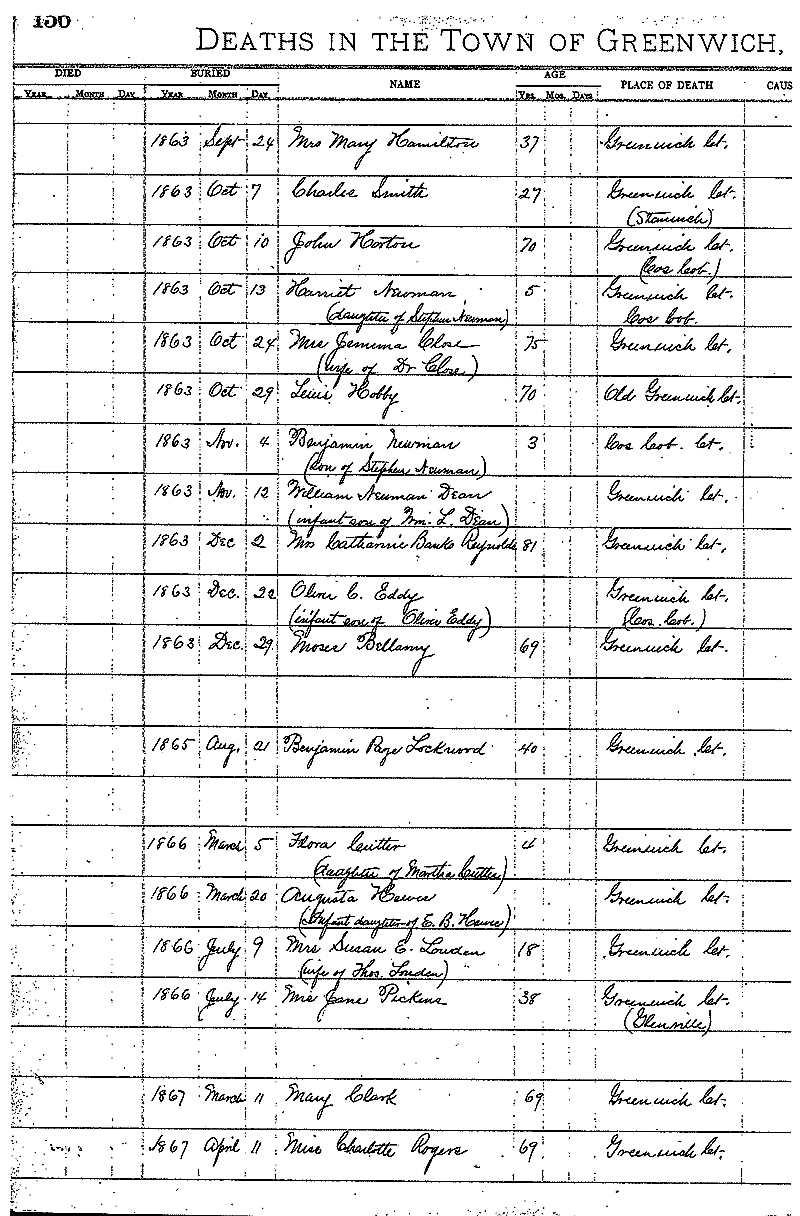 156
DEATHS IN THE TOWN OF GREENWICH,
DIED BURIED NAME AGE PLACE OF DEATH CAUS
YEAR MONTH DAY YEAR MONTH DAY YRS. MOS. DAYS
1863 Sept 24 Mrs Mary Hamilton 37 Greenwich Ct.
1863 Oct 7 Charles Smith 27 Greenwich Ct.
(Stanwich)
1863 Oct 10 John Horton 70 Greenwich Ct.
(Cos Cob.)
1863 Oct 13 Harriet Newman 5 Greenwich Ct.
(daughter of Stephen Newman) Cos Cob.
1863 Oct 24 Mrs Jemima Close 75 Greenwich Ct.
(wife of Dr Close)
1863 Oct 29 Lewis Hobby 70 Old Greenwich Ct.
1863 Nov. 4 Benjamin Newman 3 Cos Cob. Ct.
(Son of Stephen Newman)
1863 Nov. 12 William Newman Dean Greenwich Ct.
(infant son of Wm. L. Dean)
1863 Dec 2 Mrs Catharine Banks Reynolds 81 Greenwich Ct.
1863 Dec. 22 Oliver C. Eddy Greenwich Ct.
(infant son of Oliver Eddy) (Cos Cob.)
1863 Dec. 29 Moses Bellamy 69 Greenwich Ct.
1865 Aug. 21 Benjamin Page Lockwood 40 Greenwich Ct.
1866 March 5 Flora Cutter 4 Greenwich Ct.
(daughter of Martha Cutter)
1866 March 20 Augusta Hawes Greenwich Ct.
(Infant daughter of E. B. Hawes)
1866 July 9 Mrs Susan E. Louden 18 Greenwich Ct.
(wife of Thos. Louden)
1866 July 14 Mrs Jane Pickens 38 Greenwich Ct.
(Glenville)
1867 March 11 Mary Clark 69 Greenwich Ct.
1867 April 11 Miss Charlotte Rogers 69 Greenwich Ct.